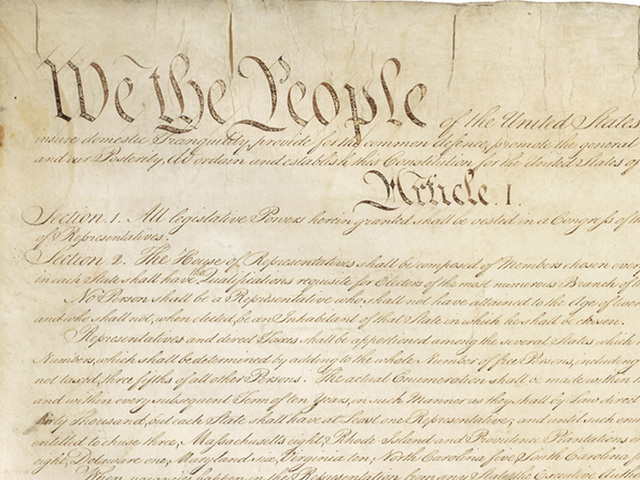 We the People of the United States
insure domestic Tranquility, provide for the common defence, promote the general
and our Posterity, do ordain and establish this Constitution for the United States of
Article. I.
Section. 1. All legislative Powers herein granted shall be vested in a Congress of
of Representatives.
Section. 2. The House of Representatives shall be composed of Members chosen every
in each State shall have the Qualifications requisite for Electors of the most numerous Branch of
No Person shall be a Representative who shall not have attained to the Age of
and who shall not, when elected, be an Inhabitant of that State in which he shall be chosen.
Representatives and direct Taxes shall be apportioned among the several States which
Numbers, which shall be determined by adding to the whole Number of free Persons, including
not taxed, three fifths of all other Persons. The actual Enumeration shall be made within
and within every subsequent Term of ten Years, in such Manner as they shall by Law direct
thirty Thousand, but each State shall have at Least one Representative; and until such
entitled to chuse three, Massachusetts eight, Rhode-Island and Providence Plantations
eight, Delaware one, Maryland six, Virginia ten, North Carolina five, South Carolina
When vacancies happen in the Representation from any State, the Executive